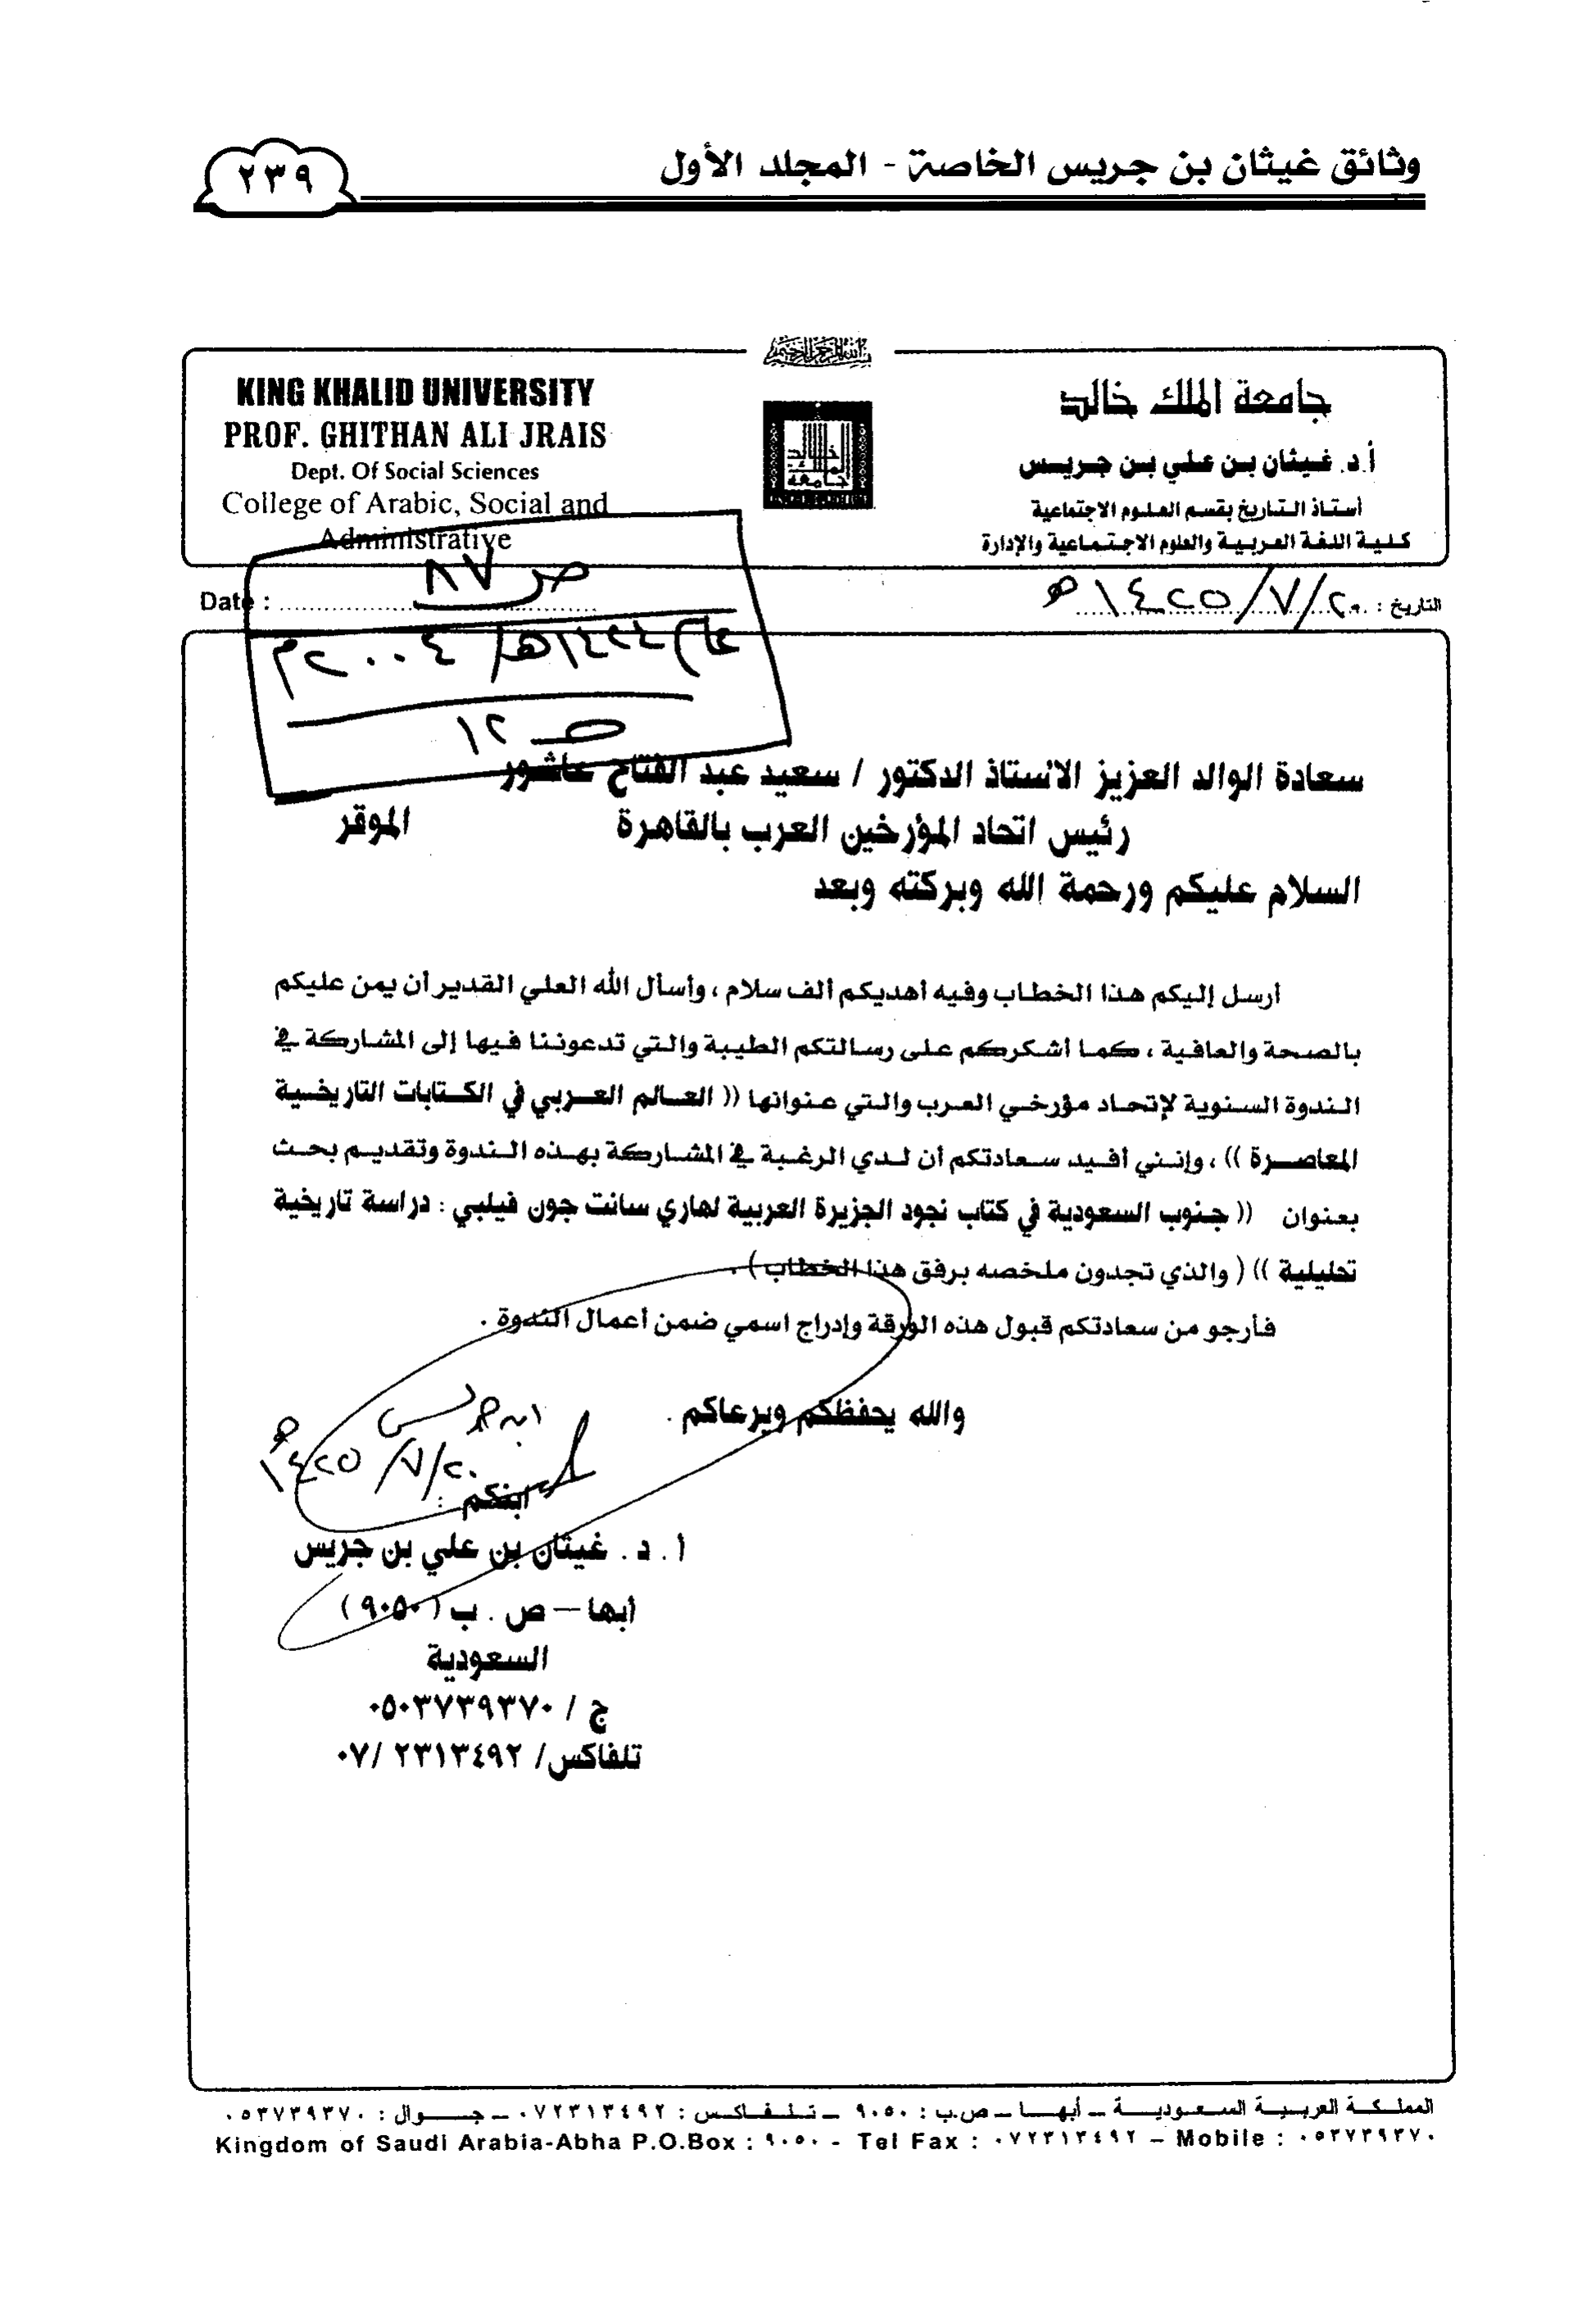 وثائق غيثان بن جريس الخاصة - المجلد الأول
٢٣٩
KING KHALID UNIVERSITY
PROF. GHITHAN ALI JRAIS
Dept. Of Social Sciences
College of Arabic, Social and
Administrative
جامعة الملك خالد
أ.د. غيثان بن علي بن جريس
أستاذ التاريخ بقسم العلوم الاجتماعية
كلية اللغة العربية والعلوم الاجتماعية والإدارة
التاريخ : ٢٠/٧/١٤٢٥هـ
Date :
ص ٨٧
٢٠٠٤م
ص ١٢
سعادة الوالد العزيز الأستاذ الدكتور / سعيد عبد الفتاح عاشور
رئيس اتحاد المؤرخين العرب بالقاهرة الموقر
السلام عليكم ورحمة الله وبركته وبعد
أرسل إليكم هذا الخطاب وفيه أهديكم ألف سلام ، وأسأل الله العلي القدير أن يمن عليكم
بالصحة والعافية ، كما أشكركم على رسالتكم الطيبة والتي تدعوننا فيها إلى المشاركة في
الندوة السنوية لإتحاد مؤرخي العرب والتي عنوانها (( العالم العربي في الكتابات التاريخية
المعاصرة )) ، وإنني أفيد سعادتكم أن لدي الرغبة في المشاركة بهذه الندوة وتقديم بحث
بعنوان (( جنوب السعودية في كتاب نجود الجزيرة العربية لهاري سانت جون فيلبي : دراسة تاريخية
تحليلية )) ( والذي تجدون ملخصه برفق هذا الخطاب ) .
فأرجو من سعادتكم قبول هذه الورقة وإدراج اسمي ضمن أعمال الندوة .
والله يحفظكم ويرعاكم .
ابن جريس
٢٠/٧/١٤٢٥هـ
ابنكم :
أ . د . غيثان بن علي بن جريس
أبها – ص . ب (٩٠٥٠)
السعودية
ج / ٠٥٠٣٧٣٩٣٧٠
تلفاكس/ ٢٣١٣٤٩٢ /٠٧
المملكة العربية السعودية – أبها – ص.ب : ٩٠٥٠ – تلفاكس : ٠٧٢٣١٣٤٩٢ – جوال : ٠٥٣٧٣٩٣٧٠
Kingdom of Saudi Arabia-Abha P.O.Box : ٩٠٥٠ - Tel Fax : ٠٧٢٣١٣٤٩٢ – Mobile : ٠٥٣٧٣٩٣٧٠